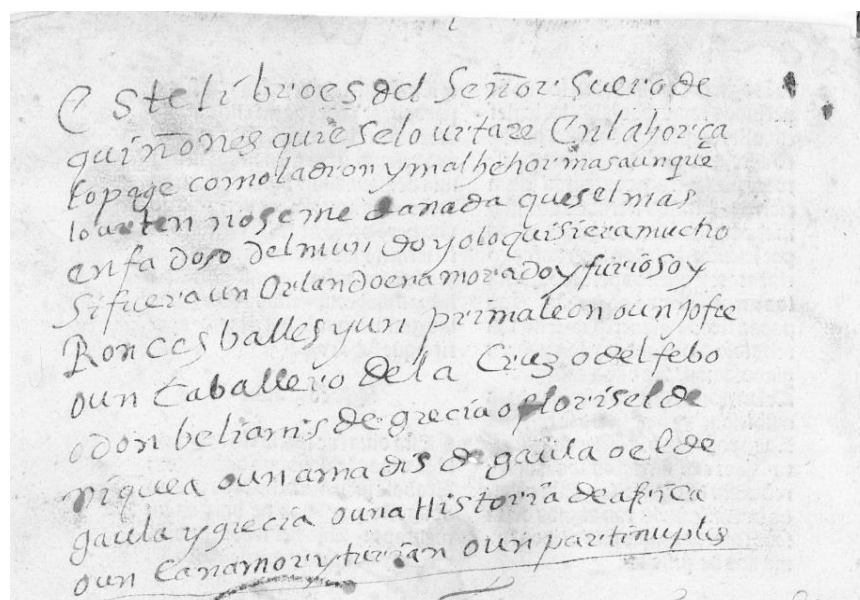 Este libro es del Señor Suero de
quiñones quie selo urtare En la horca
lo page como ladron y mal hehor mas aunque
lo urten no se me da nada ques el mas
enfadoso del mundo yo lo quisiera mucho
si fuera un Orlando enamorado y furioso y
Roncesballes y un primaleon o un jofre
o un Caballero de la Cruz o del febo
o don belianis de grecia o florisel de
niquea o un amadis de gaula o el de
gaula y grecia o una Historia de africa
o un Canamor y turian o un partinuples